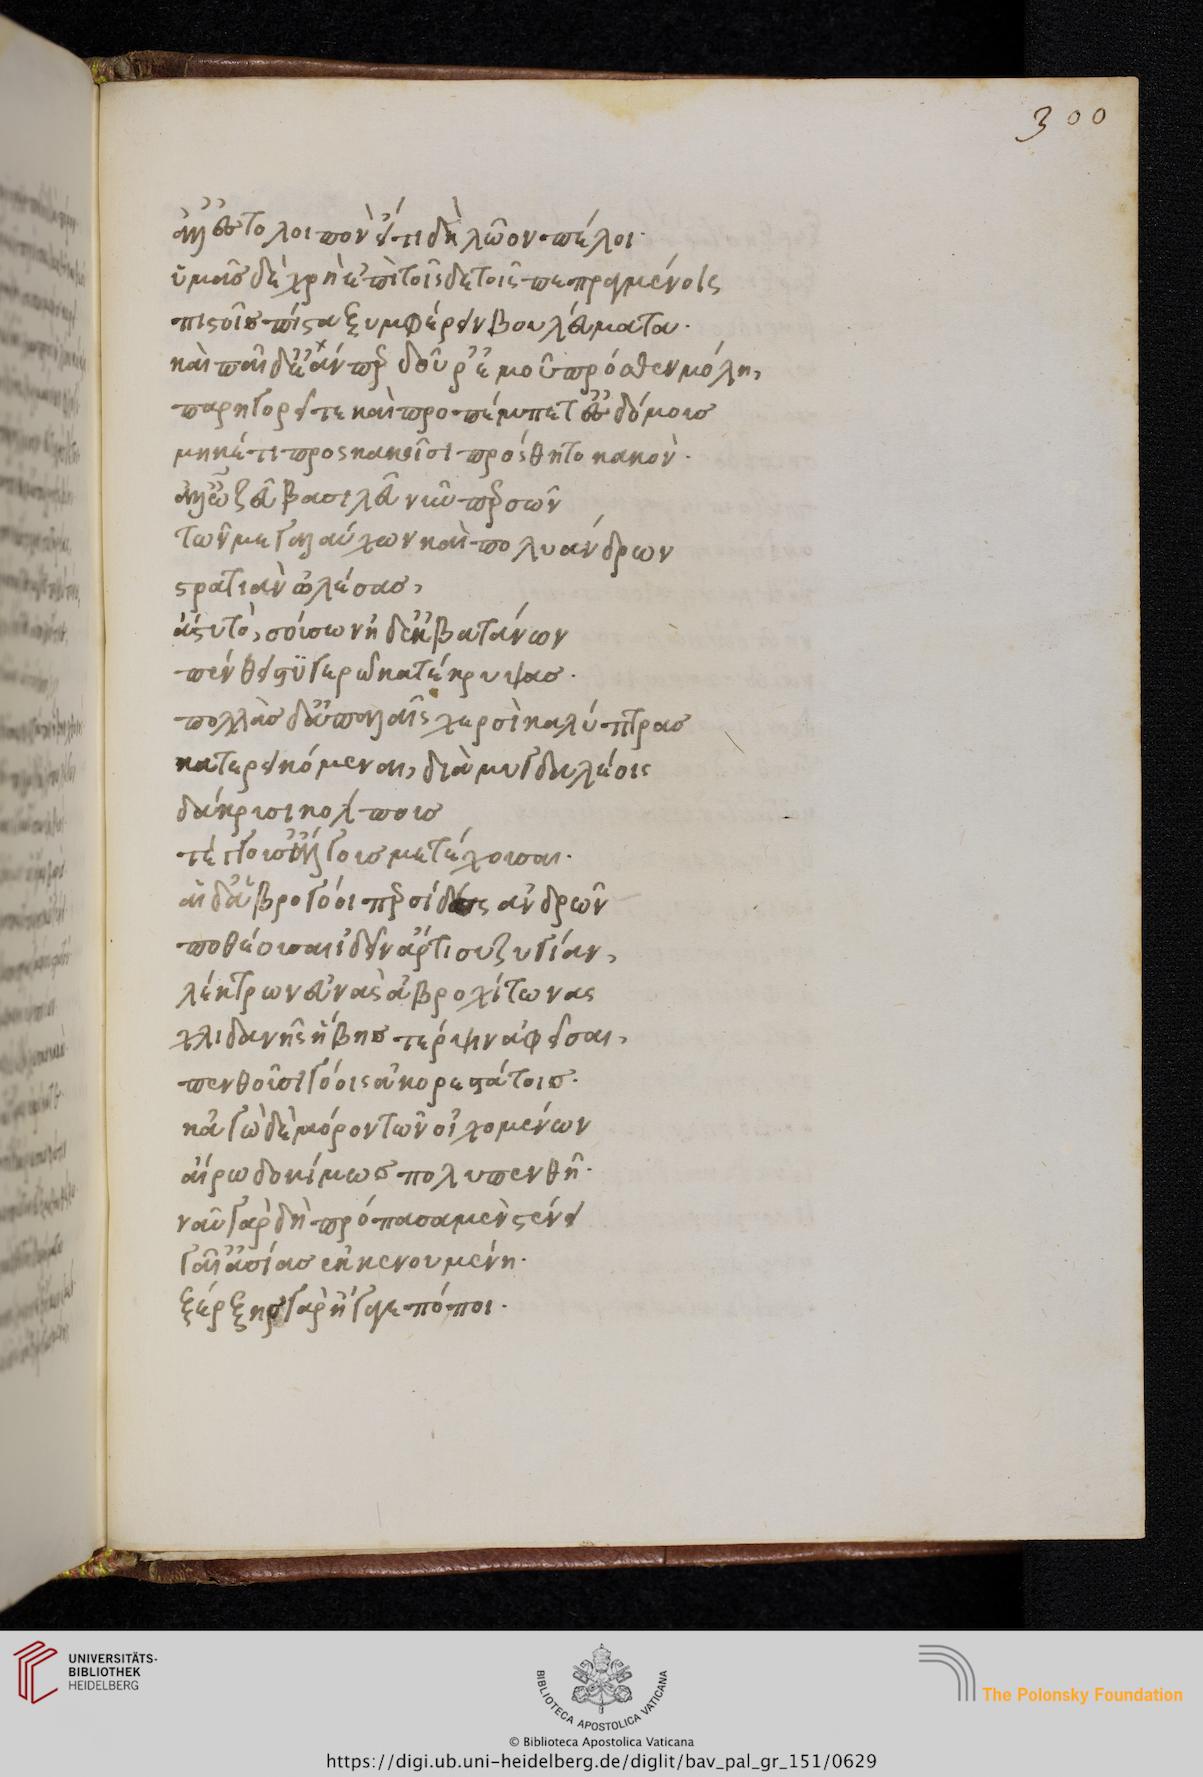 300
ἀλλ' εὖ τὸ λοιπὸν εἴ τι δὴ λῶον πέλοι·
ὑμᾶς δὲ χρὴ ἐπὶ τοῖσδε τοῖς πεπραγμένοις
πιστοῖς πιστὰ ξυμφέρειν βουλεύματα·
καὶ παῖδ' ἐάν περ δεῦρ' ἐμοῦ πρόσθεν μόλῃ,
παρηγορεῖτε καὶ προπέμπετ' εὖ δόμοις
μηκέτι πρὸς κακοῖσι πρόσθητο κακὸν·
ἀλλ' ὦ ζεῦ βασιλεῦ νῦν περσῶν
τῶν μεγαλαύχων καὶ πολυάνδρων
στρατιὰν ὀλέσας,
ἄστυ τὸ, σούσων ἠδ' ἐκβατάνων
πένθει δνοφερῷ κατέκρυψας·
πολλὰς δ' ἀπαλαῖς χερσὶ καλύπτρας
κατερεικόμεναι, διὰ μυγδαλέοις
δάκρυσι κόλποις
τέγγουσ' ἄλγους μετέχουσαι·
αἱ δ' ἁβρόγοοι περσίδες ἀνδρῶν
ποθέουσαι ἰδεῖν ἀρτιουζυγίαν,
λέκτρων εὐνὰς ἁβροχίτωνας
χλιδανῆς ἥβης τέρψιν ἀφεῖσαι,
πενθοῦσι γόοις ἀκορεστάτοις·
κἀγὼ δὲ μόρον τῶν οἰχομένων
αἴρω δοκίμως πολυπενθῆ·
νῦν γὰρ δὴ πρόπασα μὲν στένει
γαῖ' ἀσίας ἐκκενουμένη·
ξέρξης γὰρ ἤγαγε πόποι·
UNIVERSITÄTS-
BIBLIOTHEK
HEIDELBERG
BIBLIOTECA APOSTOLICA VATICANA
© Biblioteca Apostolica Vaticana
The Polonsky Foundation
https://digi.ub.uni-heidelberg.de/diglit/bav_pal_gr_151/0629